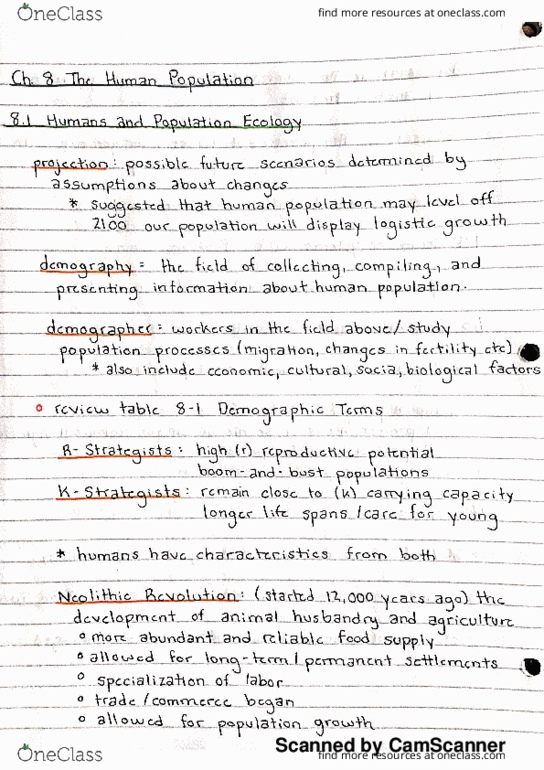 OneClass
find more resources at oneclass.com
Ch 8 The Human Population
8.1 Humans and Population Ecology
projection: possible future scenarios determined by
assumptions about changes
* suggested that human population may level off
2100 our population will display logistic growth
demography: the field of collecting, compiling, and
presenting information about human population.
demographer: workers in the field above/study
population processes (migration, changes in fertility etc)
* also include economic, cultural, socia, biological factors
review table 8-1 Demographic Terms
R-Strategists: high (r) reproductive potential
boom-and-bust populations
K-Strategists: remain close to (k) carrying capacity
longer life spans/care for young
* humans have characteristics from both
Neolithic Revolution: (started 12,000 years ago) the
development of animal husbandry and agriculture
° more abundant and reliable food supply
° allowed for long-term/permanent settlements
° specialization of labor
° trade/commerce began
° allowed for population growth
Scanned by CamScanner
OneClass
find more resources at oneclass.com